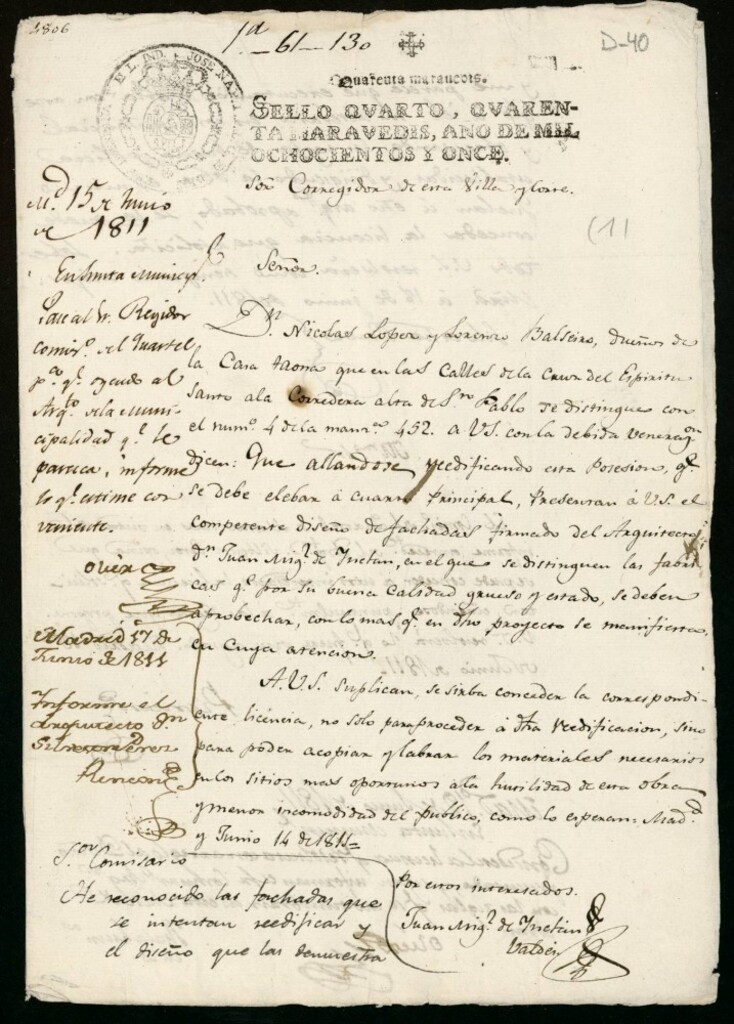 4806
1ª - 61 - 130
D-40
Quarenta marauedis.
SELLO QVARTO, QVAREN-
TA MARAVEDIS, AÑO DE MIL
OCHOCIENTOS Y ONCE.
Sor Corregidor de esta Villa y Corte.
(1)
M.d 15 de Junio
de 1811
En Junta Municip.l
Pase al Sr. Regidor
comis.o del Quartel
p.a q.e oyendo al
Arq.to de la Muni-
cipalidad q.e le
parezca, informe
lo q.e estime con
veniente.
Madrid 17 de
Junio de 1811
Informe el
Arquitecto Dn
Silvestre Perez
Rincon
Señor.
Dn. Nicolas Lopez y Lorenzo Balseiro, dueños de
la Casa taona que en las Calles de la Cruz del Espiritu
Santo a la Corredera alta de Sn Pablo se distingue con
el num.o 4 de la manz.na 452. a V.S. con la debida veneraz.on
dicen: Que allandose reedificando esta Posesion, q.e
se debe elebar á cuarto Principal, Presentan á V.S. el
competente diseño de fachadas firmado del Arquitecto
dn. Juan Mig.l de Inclan, en el que se distinguen las fabri
cas q.e por su buena calidad grueso y estado, se deben
aprobechar, con lo mas q.e en dho proyecto se manifiesta,
en cuya atencion.
A.V.S. Suplican, se sirba conceder la correspondi-
ente licencia, no solo para proceder á dha reedificacion, sino
para poder acopiar y labrar los materiales necesarios
en los sitios mas oportunos a la hutilidad de esta obra
y menor incomodidad del publico, como lo esperan: Mad.d
y Junio 14 de 1811=
Por estos interesados.
Juan Mig.l de Inclan
Valdes
S.or Comisario
He reconocido las fachadas que
se intentan reedificar y
el diseño que las demuestra